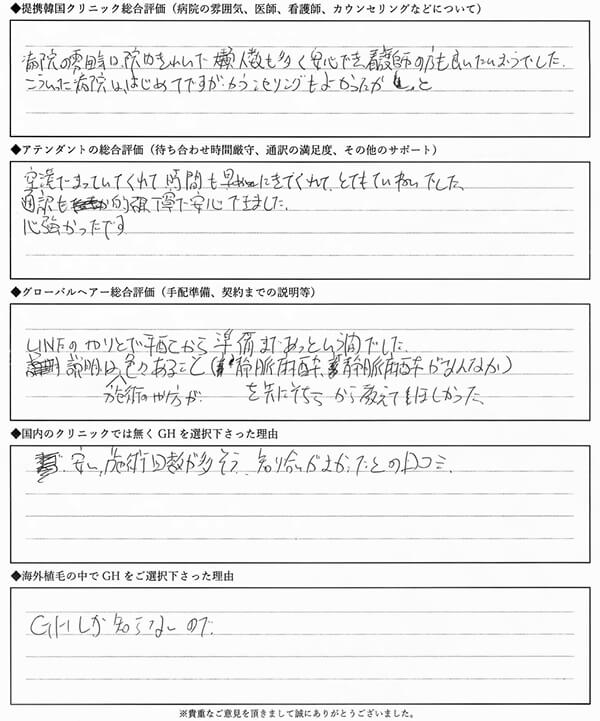 ◆提携韓国クリニック総合評価（病院の雰囲気、医師、看護師、カウンセリングなどについて）
病院の雰囲気は、院内きれいで 人数も多く安心でき看護師の方も良い
こういった病院ははじめてですがカウンセリングもよかったが と
◆アテンダントの総合評価（待ち合わせ時間厳守、通訳の満足度、その他のサポート）
空港でまっていてくれて時間も早めにきてくれて、とてもていねいでした。
通訳も的確丁寧で安心できました。
心強かったです
◆グローバルヘアー総合評価（手配準備、契約までの説明等）
LINEのやりとりで手配から準備まであっという間でした。
説明は色々あること（静脈麻酔、静脈麻酔がなんなか）
施術の仕方が を先にそちらから教えてほしかった
◆国内のクリニックでは無くGHを選択下さった理由
安い、施術回数が多そう、知り合いがよかったとの口コミ、
◆海外植毛の中でGHをご選択下さった理由
GHしか知らないので
※貴重なご意見を頂きまして誠にありがとうございました。